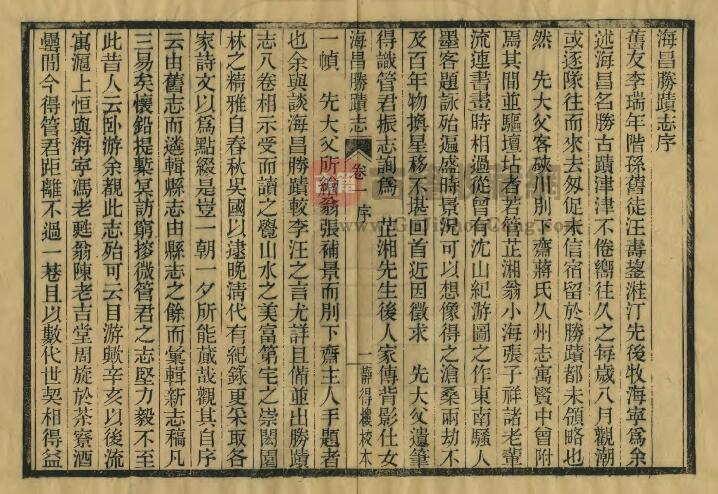 海昌勝蹟志序
舊友李瑞年階孫舊徒汪壽鋆湛汀先後牧海寧爲余
述海昌名勝古蹟津津不倦嚮往久之每歲八月觀潮
或逐隊往而來去匆促未信宿留於勝蹟都未領略也
然　先大父客硤川別下齋蔣氏久州志寓賢中曾附
焉其間並驅壇坫者若管芷湘翁小海張子祥諸老輩
流連書畫時相過從曾有沈山紀游圖之作東南騷人
墨客題詠殆遍盛時景況可以想像得之滄桑兩劫不
及百年物換星移不堪回首近因徵求　先大父遺筆
得識管君振志詢爲　芷湘先生後人家傳背影仕女
海昌勝蹟志　卷　序　一　靜得樓校本
一幀　先大父所繪翁張補景而別下齋主人手題者
也余與談海昌勝蹟較李汪之言尤詳且備並出勝蹟
志八卷相示受而讀之覺山水之美富第宅之崇閎園
林之精雅自春秋吳國以逮晚淸代有紀錄更采取各
家詩文以爲點綴是豈一朝一夕所能蕆哉觀其自序
云由舊志而遴輯縣志由縣志之餘而彙輯新志稿凡
三易矣懷鉛提槧冥訪窮搜微管君之志堅力毅不至
此昔人云臥游余觀此志殆可云目游歟辛亥以後流
寓滬上恒與海寧馮老甦翁陳老吉堂周旋於茶寮酒
罍間今得管君距離不過一巷且以數代世契相得益